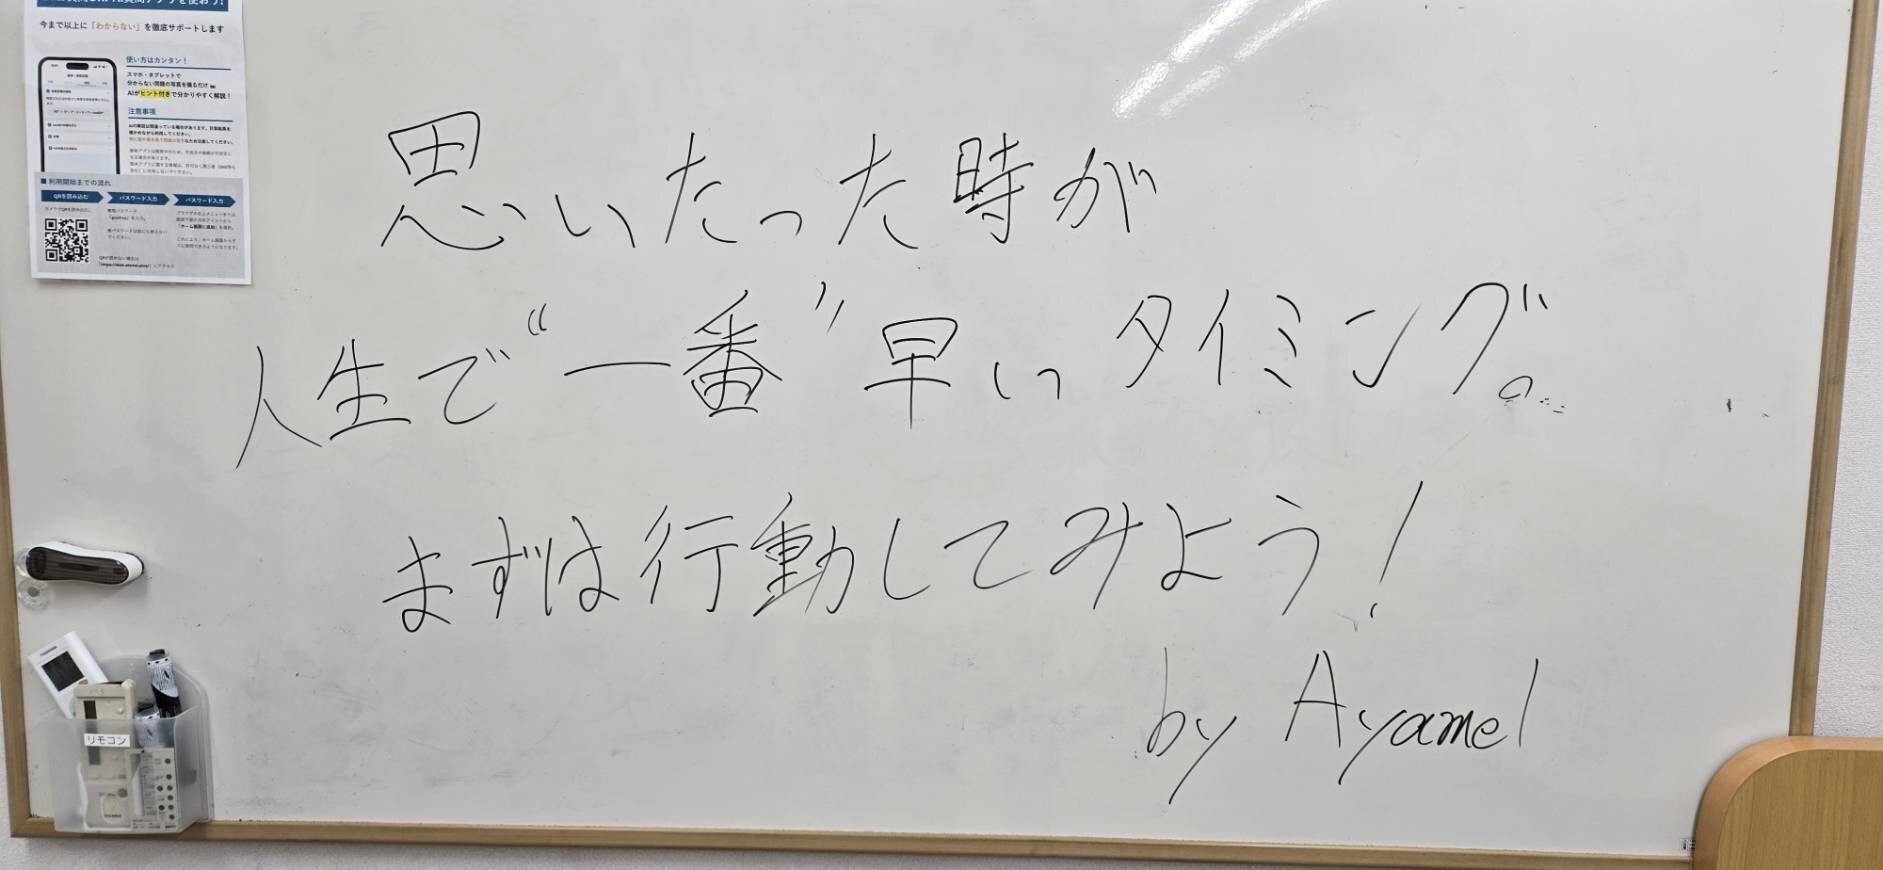 今まで以上に「わからない」を徹底サポートします
使い方はカンタン！
スマホ・タブレットで
分からない問題の写真を撮るだけ
AIがヒント付きで分かりやすく解説！
注意事項
■ 利用開始までの流れ
QRを読み込む
パスワード入力
パスワード入力
思いたった時が
人生で“一番”早いタイミング。
まずは行動してみよう！
by Ayamel
リモコン